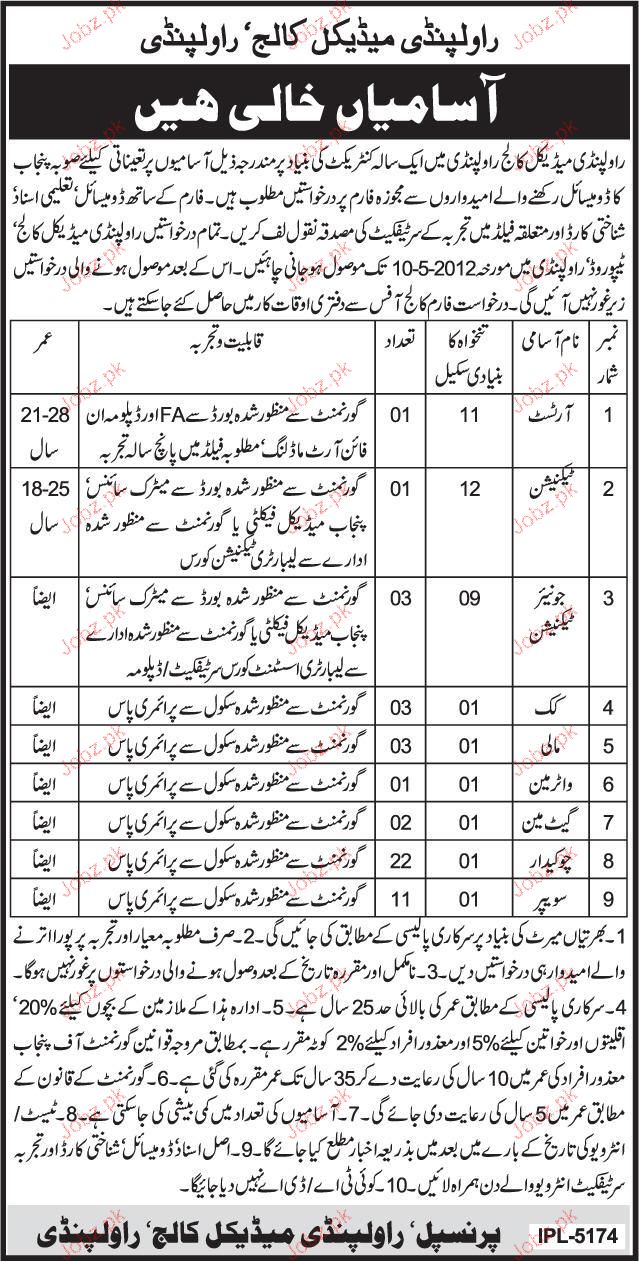 راولپنڈی میڈیکل کالج، راولپنڈی
آسامیاں خالی ھیں
راولپنڈی میڈیکل کالج راولپنڈی میں ایک سالہ کنٹریکٹ کی بنیاد پر مندرجہ ذیل آسامیوں پر تعیناتی کیلئے صوبہ پنجاب
کا ڈومیسائل رکھنے والے امیدواروں سے مجوزہ فارم پر درخواستیں مطلوب ہیں۔ فارم کے ساتھ ڈومیسائل، تعلیمی اسناد،
شناختی کارڈ اور متعلقہ فیلڈ میں تجربہ کے سرٹیفکیٹ کی مصدقہ نقول لف کریں۔ تمام درخواستیں راولپنڈی میڈیکل کالج،
ٹیپو روڈ، راولپنڈی میں مورخہ 10-5-2012 تک موصول ہو جانی چاہئیں۔ اس کے بعد موصول ہونے والی درخواستیں
زیر غور نہیں آئیں گی۔ درخواست فارم کالج آفس سے دفتری اوقات کار میں حاصل کئے جا سکتے ہیں۔
نمبر شمار | نام آسامی | تنخواہ کا بنیادی سکیل | تعداد | قابلیت و تجربہ | عمر
1 | آرٹسٹ | 11 | 01 | گورنمنٹ سے منظور شدہ بورڈ سے FA اور ڈپلومہ ان | 21-28
فائن آرٹ ماڈلنگ، مطلوبہ فیلڈ میں پانچ سالہ تجربہ | سال
2 | ٹیکنیشن | 12 | 01 | گورنمنٹ سے منظور شدہ بورڈ سے میٹرک سائنس، | 18-25
پنجاب میڈیکل فیکلٹی یا گورنمنٹ سے منظور شدہ | سال
ادارے سے لیبارٹری ٹیکنیشن کورس
3 | جونیئر ٹیکنیشن | 09 | 03 | گورنمنٹ سے منظور شدہ بورڈ سے میٹرک سائنس، | ایضاً
پنجاب میڈیکل فیکلٹی یا گورنمنٹ سے منظور شدہ ادارے
سے لیبارٹری اسسٹنٹ کورس سرٹیفکیٹ / ڈپلومہ
4 | کک | 01 | 03 | گورنمنٹ سے منظور شدہ سکول سے پرائمری پاس | ایضاً
5 | مالی | 01 | 03 | گورنمنٹ سے منظور شدہ سکول سے پرائمری پاس | ایضاً
6 | واٹر مین | 01 | 01 | گورنمنٹ سے منظور شدہ سکول سے پرائمری پاس | ایضاً
7 | گیٹ مین | 01 | 02 | گورنمنٹ سے منظور شدہ سکول سے پرائمری پاس | ایضاً
8 | چوکیدار | 01 | 22 | گورنمنٹ سے منظور شدہ سکول سے پرائمری پاس | ایضاً
9 | سویپر | 01 | 11 | گورنمنٹ سے منظور شدہ سکول سے پرائمری پاس | ایضاً
1۔ بھرتیاں میرٹ کی بنیاد پر سرکاری پالیسی کے مطابق کی جائیں گی۔ 2۔ صرف مطلوبہ معیار اور تجربہ پر پورا اترنے
والے امیدوار ہی درخواستیں دیں۔ 3۔ نامکمل اور مقررہ تاریخ کے بعد وصول ہونے والی درخواستوں پر غور نہیں ہوگا۔
4۔ سرکاری پالیسی کے مطابق عمر کی بالائی حد 25 سال ہے۔ 5۔ ادارہ ہذا کے ملازمین کے بچوں کیلئے 20%،
اقلیتوں اور خواتین کیلئے 5% اور معذور افراد کیلئے 2% کوٹہ مقرر ہے۔ بمطابق مروجہ قوانین گورنمنٹ آف پنجاب
معذور افراد کی عمر میں 10 سال کی رعایت دے کر 35 سال تک عمر مقرر کی گئی ہے۔ 6۔ گورنمنٹ کے قانون کے
مطابق عمر میں 5 سال کی رعایت دی جائے گی۔ 7۔ آسامیوں کی تعداد میں کمی بیشی کی جا سکتی ہے۔ 8۔ ٹیسٹ /
انٹرویو کی تاریخ کے بارے میں بعد میں بذریعہ اخبار مطلع کیا جائے گا۔ 9۔ اصل اسناد، ڈومیسائل، شناختی کارڈ اور تجربہ
سرٹیفکیٹ انٹرویو والے دن ہمراہ لائیں۔ 10۔ کوئی ٹی اے / ڈی اے نہیں دیا جائیگا۔
پرنسپل، راولپنڈی میڈیکل کالج، راولپنڈی
IPL-5174
Jobz.pk